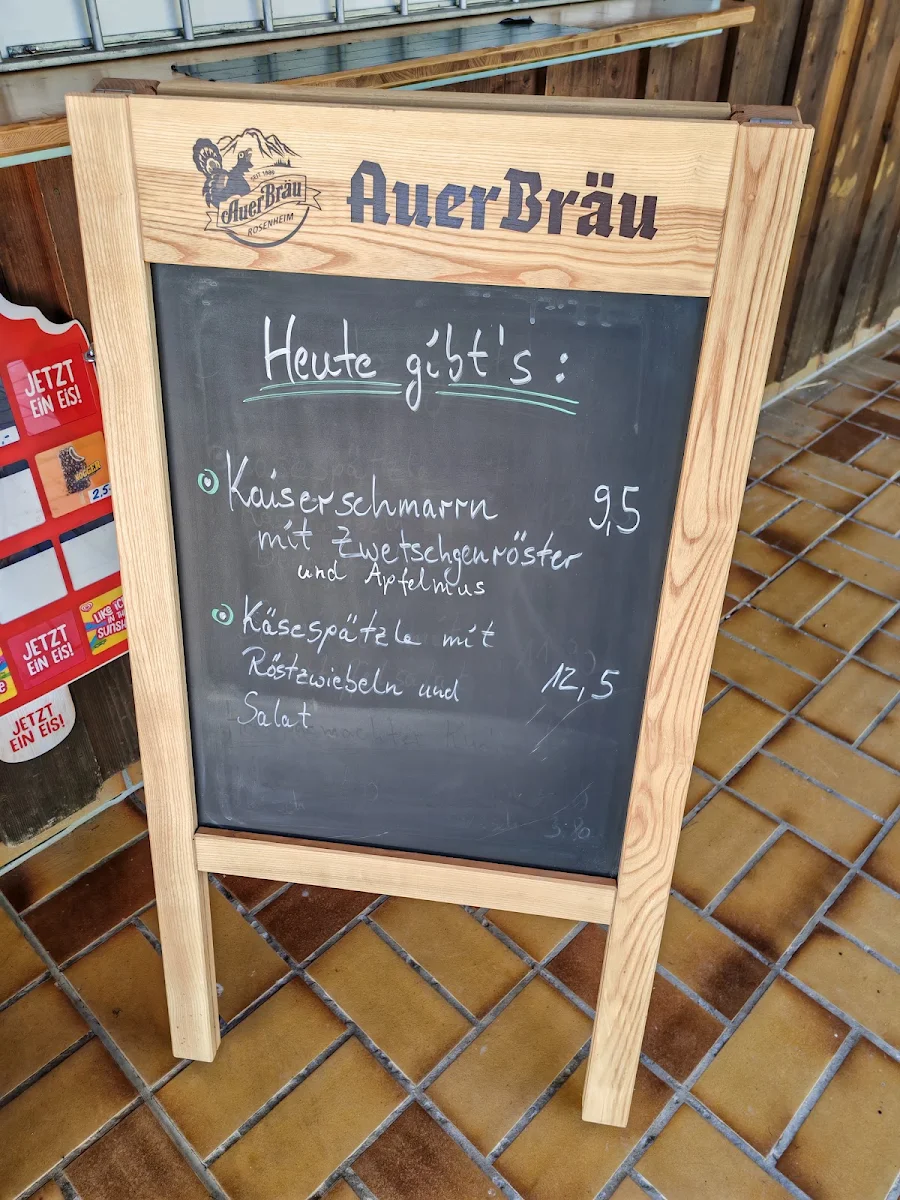 SEIT 1889
AuerBräu
ROSENHEIM
AuerBräu
Heute gibt's :
Kaiserschmarrn 9,5
mit Zwetschgenröster
und Apfelmus
Käsespätzle mit
Röstzwiebeln und 12,5
Salat
JETZT
EIN EIS!
NOGGER
2,5
JETZT
EIN EIS!
LIKE ICE
IN THE
SUNSHI
JETZT
EIN EIS!